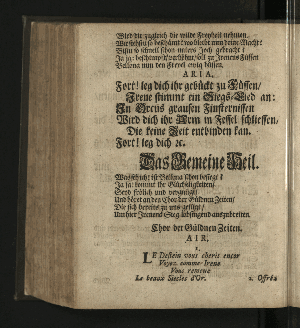 Wird dir zugleich die wilde Frechheit nehmen.
Wie stehstu so beschämt? wo bleibt nun deine Macht?
Bistu so schnell schon unters Joch gebracht?
Ja ja: beschimpfft/verhöhnt/soll zu Irenens Füssen
Bellona nun den Frevel ewig büssen.
ARIA.
Fort! leg dich ihr gebückt zu Füssen/
Irene stimmt ein Sieges-Lied an:
In Orcus grausen Finsternissen
Wird dich ihr Arm in Fessel schliessen/
Die keine Zeit entbinden kan.
Fort! leg dich &c.
Das Gemeine Heil.
Was? ist Bellona schon besiegt?
Ja ja: kommt ihr Glückseligkeiten/
Seyd frölich und vergnügt!
Und höret an den Chor der Güldnen Zeiten/
Die sich bereits zu uns gefügt/
Um hier Irenens Sieg lobsingend auszubreiten.
Chor der Güldnen Zeiten.
AIR.
1.
LE Destein vous cherit encor
Voyez comme Irene
Vous remene
Le beaux Siecles d'Or.
2. Offréz